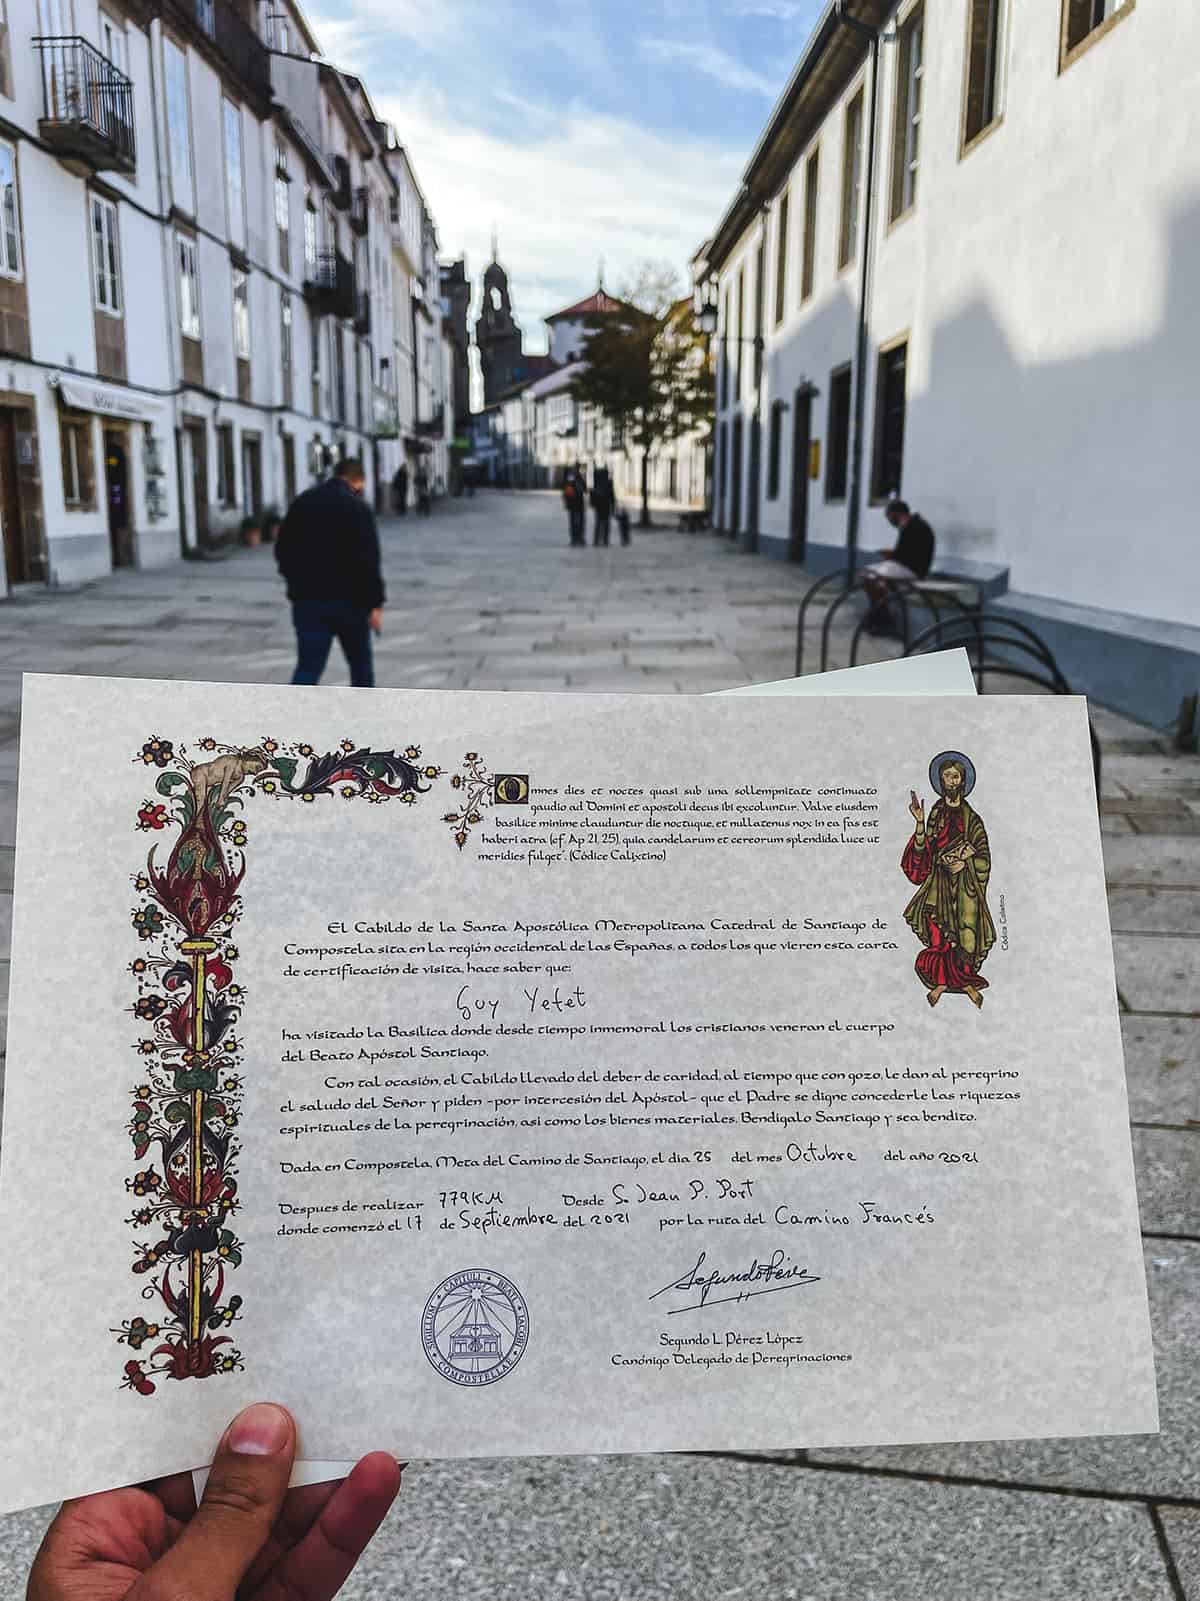 Omnes dies et noctes quasi sub una sollempnitate continuato
gaudio ad Domini et apostoli decus ibi excoluntur. Valve eiusdem
basilice minime clauduntur die noctuque, et nullatenus nox in ea fas est
haberi atra (cf. Ap 21, 25), quia candelarum et cereorum splendida luce ut
meridies fulget". (Códice Calixtino)
Códice Calixtino
El Cabildo de la Santa Apostólica Metropolitana Catedral de Santiago de
Compostela sita en la región occidental de las Españas, a todos los que vieren esta carta
de certificación de visita, hace saber que:
Guy Yefet
ha visitado la Basílica donde desde tiempo inmemorial los cristianos veneran el cuerpo
del Beato Apóstol Santiago.
Con tal ocasión, el Cabildo llevado del deber de caridad, al tiempo que con gozo, le dan al peregrino
el saludo del Señor y piden -por intercesión del Apóstol- que el Padre se digne concederle las riquezas
espirituales de la peregrinación, así como los bienes materiales. Bendígalo Santiago y sea bendito.
Dada en Compostela, Meta del Camino de Santiago, el día 25 del mes Octubre del año 2021
Despues de realizar 779KM Desde S. Jean P. Port
donde comenzó el 17 de Septiembre del 2021 por la ruta del Camino Francés
SIGILLUM CAPITULI BEATI JACOBI COMPOSTELLAE
Segundo Pérez
Segundo L. Pérez López
Canónigo Delegado de Peregrinaciones